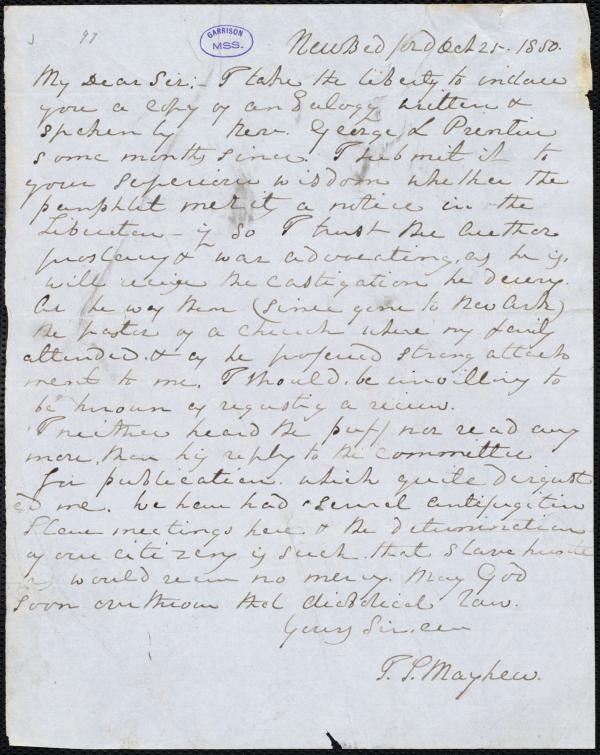 97
GARRISON
MSS.
New Bedford Oct 25. 1850.
My Dear Sir;- I take the liberty to inclose
you a copy of an Eulogy written &
spoken by Rev. George L Prentiss
some months since. I submit it to
your superior wisdom whether the
pamphlet merit a notice in the
Liberator - if so I trust the author
proslavery & war advocating, as he is,
will receive the castigation he deserves.
As he was then (since gone to Newark)
the pastor of a church where my family
attended, & as he professed strong attach
ment to me, I should be unwilling to
be known as requesting a review.
I neither heard the puff, nor read any
more than his reply to the committee
for publication, which quite disgust
ed me. We have had several antifugitive
Slave meetings here & the determination
of our citizens is such, that slave hunte
rs would receive no mercy. May God
soon overthrow that diabolical law.
Yours Sincere
T. P. Mayhew.